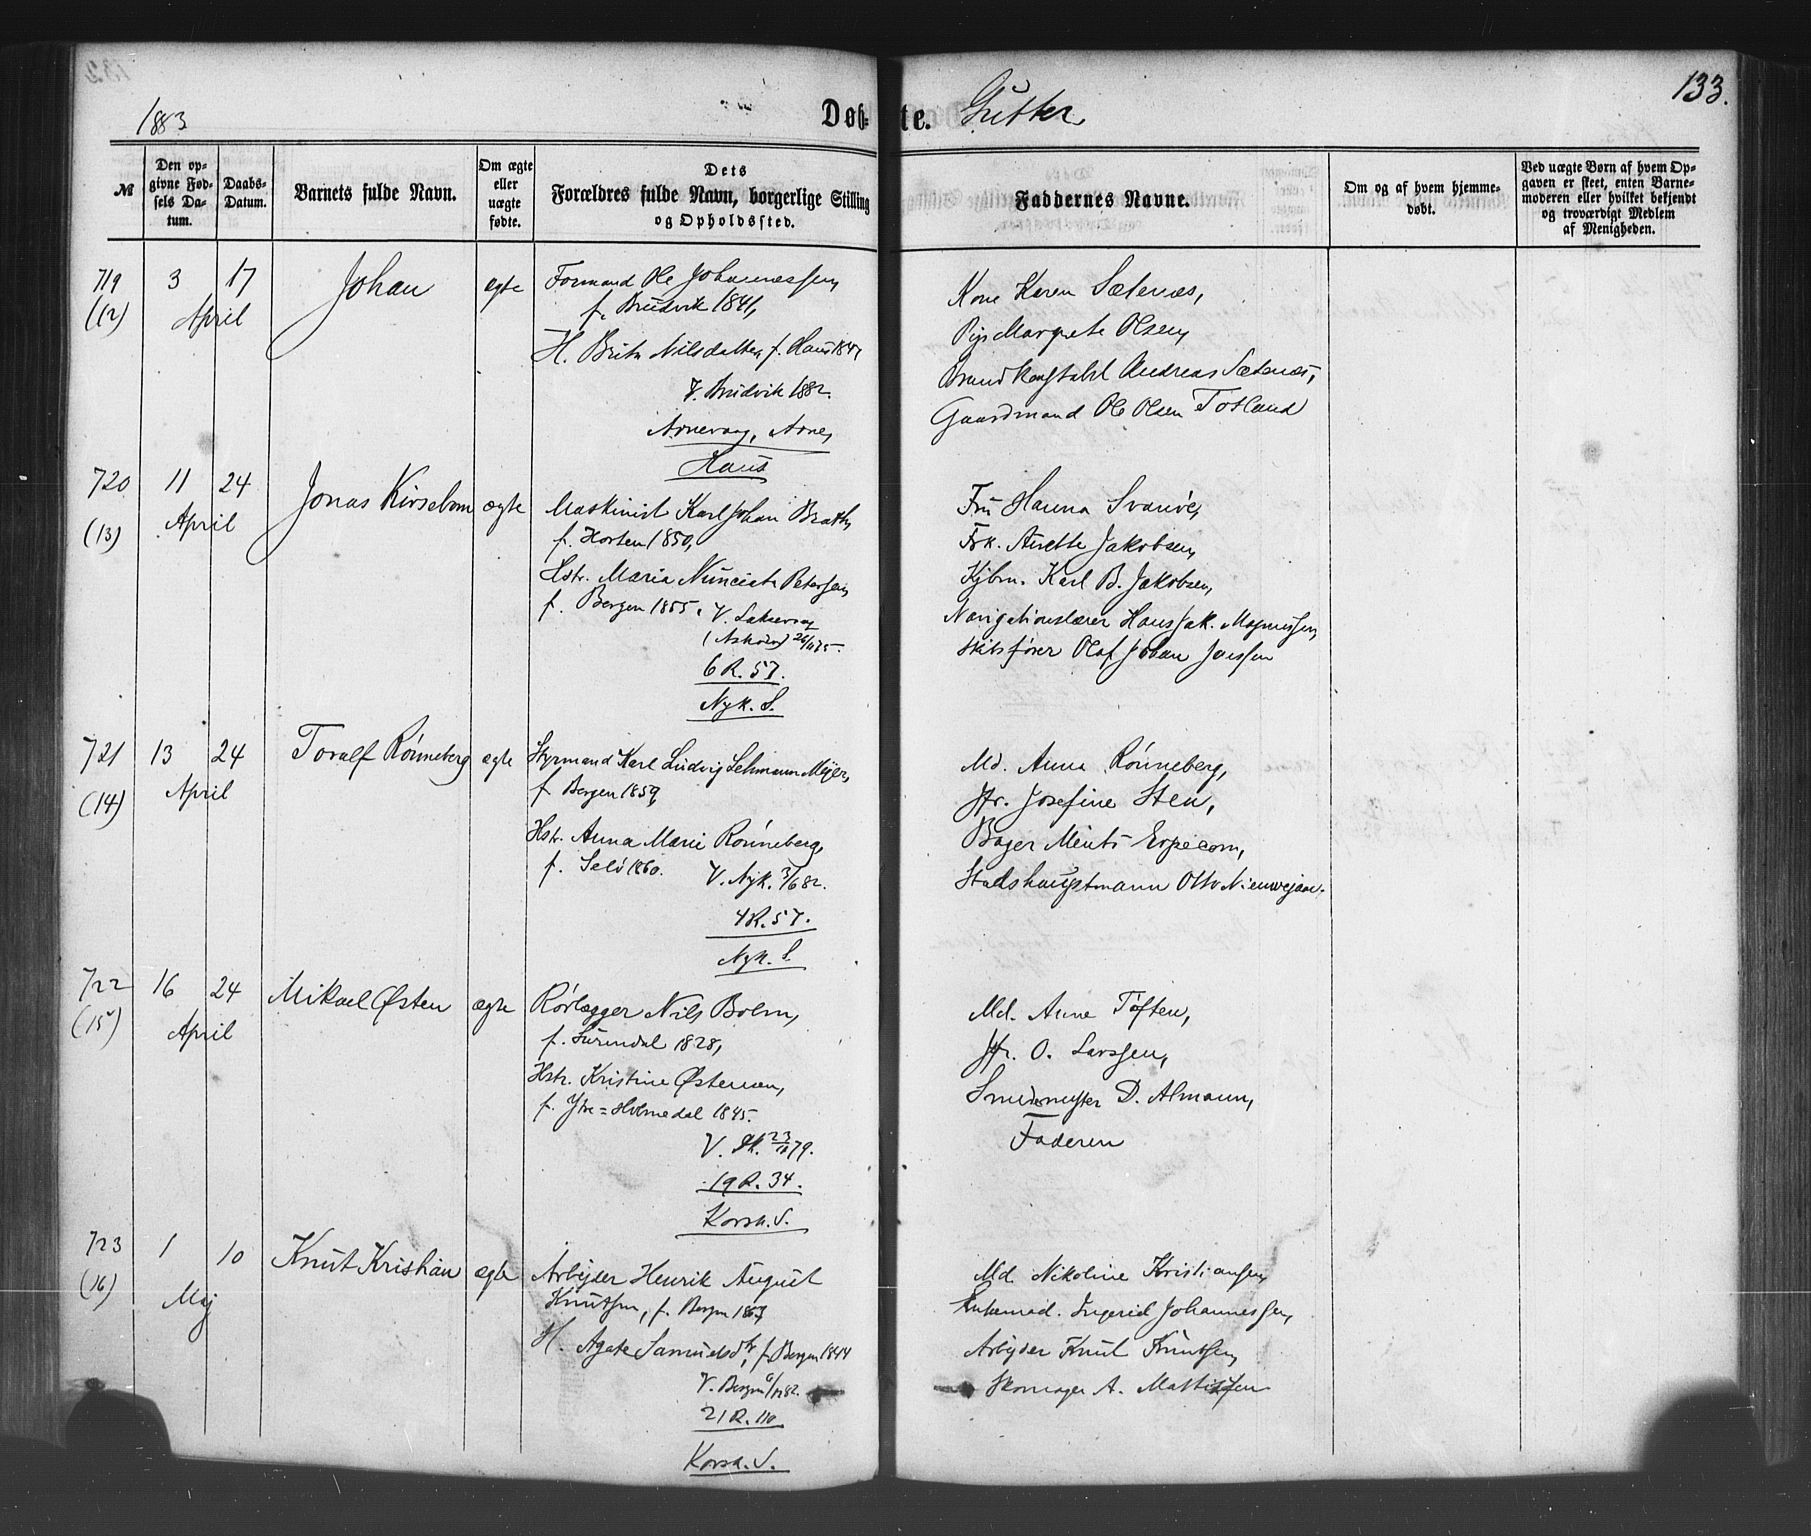 133.
1883
Døb- te. Gutter
№
Den opgivne Fødsels Datum.
Daabs-Datum.
Barnets fulde Navn.
Om ægte eller uægte fødte.
Dets Forældres fulde Navn, borgerlige Stilling og Opholdssted.
Faddernes Navne.
Om og af hvem hjemmedøbt.
Ved uægte Børn af hvem Opgaven er skeet, enten Barnemoderen eller hvilket bekjendt og troværdigt Medlem af Menigheden.
719 3 17 Johan ægte
(12) April
Formand Ole Johannessen,
f. Brudvik 1841,
H. Brita Nilsdatter, f. Haus
V. Brudvik 1882.
Arnevaag, Arne,
Haus
Kone Karen Sætenæs,
Pige Margrete Olsen,
Brandkonstabel Andreas Sætenæs,
Gaardmand Ole Olsen Totland
720 11 24 Jonas Kirsebom ægte
(13) April
Maskinist Karl Johan Brath,
f. Horten 1850,
Hstr. Maria Nunciata Petersen,
f. Bergen 1855, V.
(Askøen)
6 R. 57.
Nyk. S.
Fru Hanna Svanøe,
Frk. Anette Jakobsen,
Kjbm. Karl B. Jakobsen,
Navigationslærer Hans Jak. Magnussen,
Skibsfører Olaf Johan Janssen
721 13 24 Toralf Rønneberg ægte
(14) April
Styrmand Karl Ludvig Lehmann Meyer,
f. Bergen 1859,
Hstr. Anna Marie Rønneberg,
f. Selø 1860. V. Nyk. 3/6 82.
4 R. 57.
Nyk. S.
Md. Anna Rønneberg,
Jfr. Josefine Sten,
Bager Ments Erpecom,
Stadshauptmann Otto
722 16 24 Mikael Østen ægte
(15) April
Rørlægger Nils Bolm,
f. Surendal 1828,
Hstr. Kristine Østensen,
f. Ytre=Holmedal 1845.
V. Dk. 23/11 79.
19 R. 34.
Korsk. S.
Md. Anne Tøften,
Jfr. O. Larssen,
Smedmester D. Almann,
Faderen
723 1 10 Knut Kristian ægte
(16) Maj
Arbejder Henrik August
Knutsen, f. Bergen
H. Agate Samuelsdtr, f. Bergen 1844
V. Bergen 82.
21 R. 110
Korsk. S.
Md. Nikoline Kristiansen,
Enkemad. Ingerid Johannessen,
Arbejder Knut Knutsen,
Skomager A. Mattissen